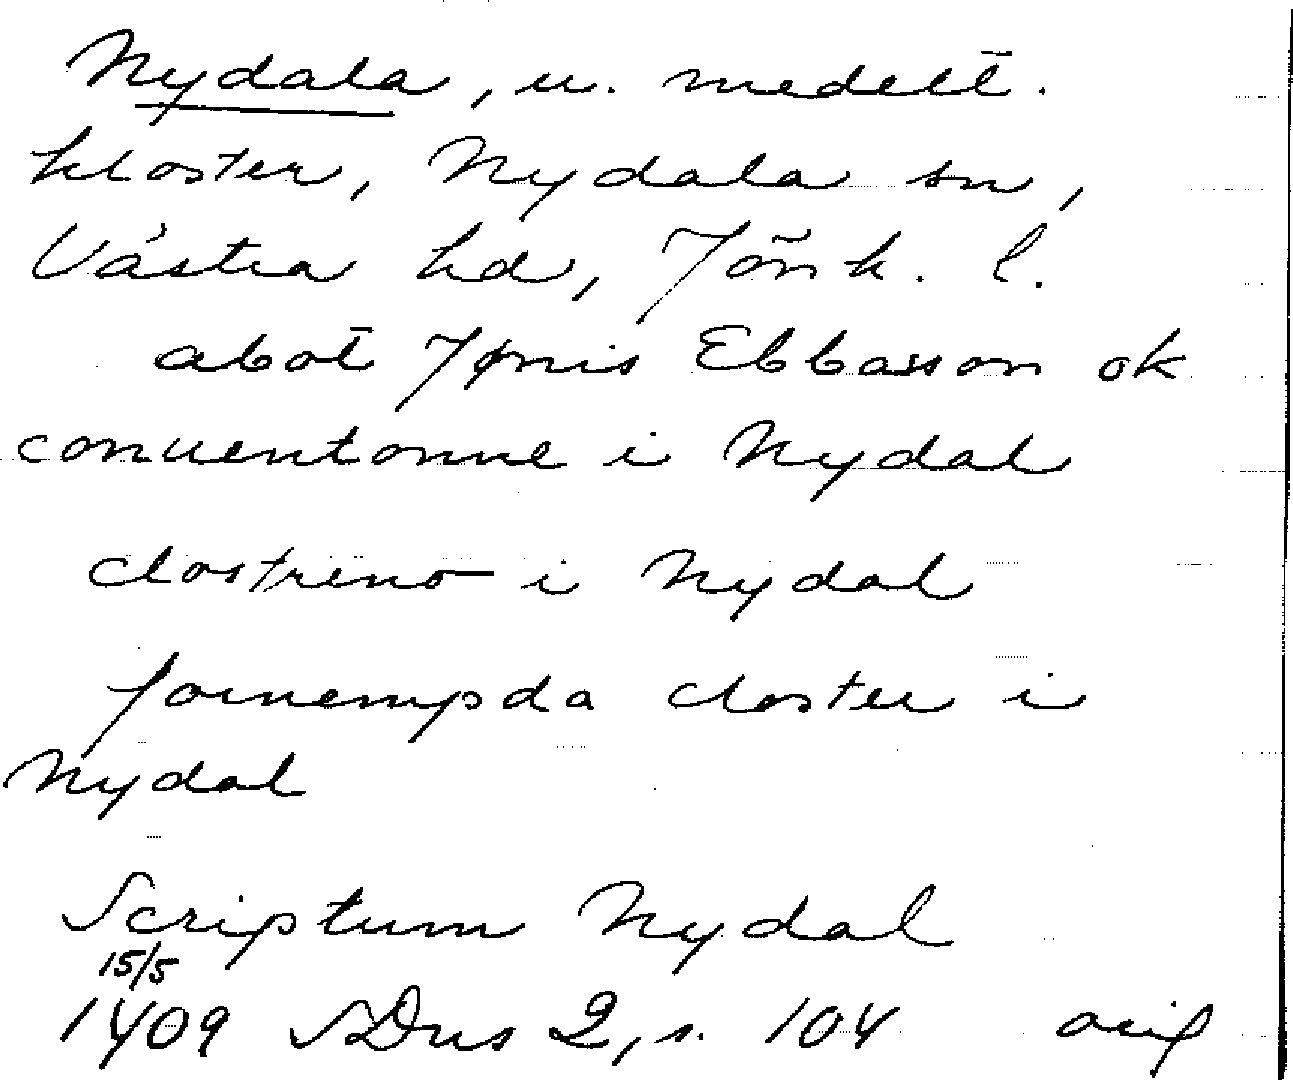 Nydala, u. medelt.
kloster, Nydala sn,
Västra hd, Jönk. l.
abot Jønis Ebbasson ok
conuentonne i Nydal
clostreno i Nydal
fornempda closter i
Nydal
Scriptum Nydal
15/5
1409 SDns 2, s. 104 orig